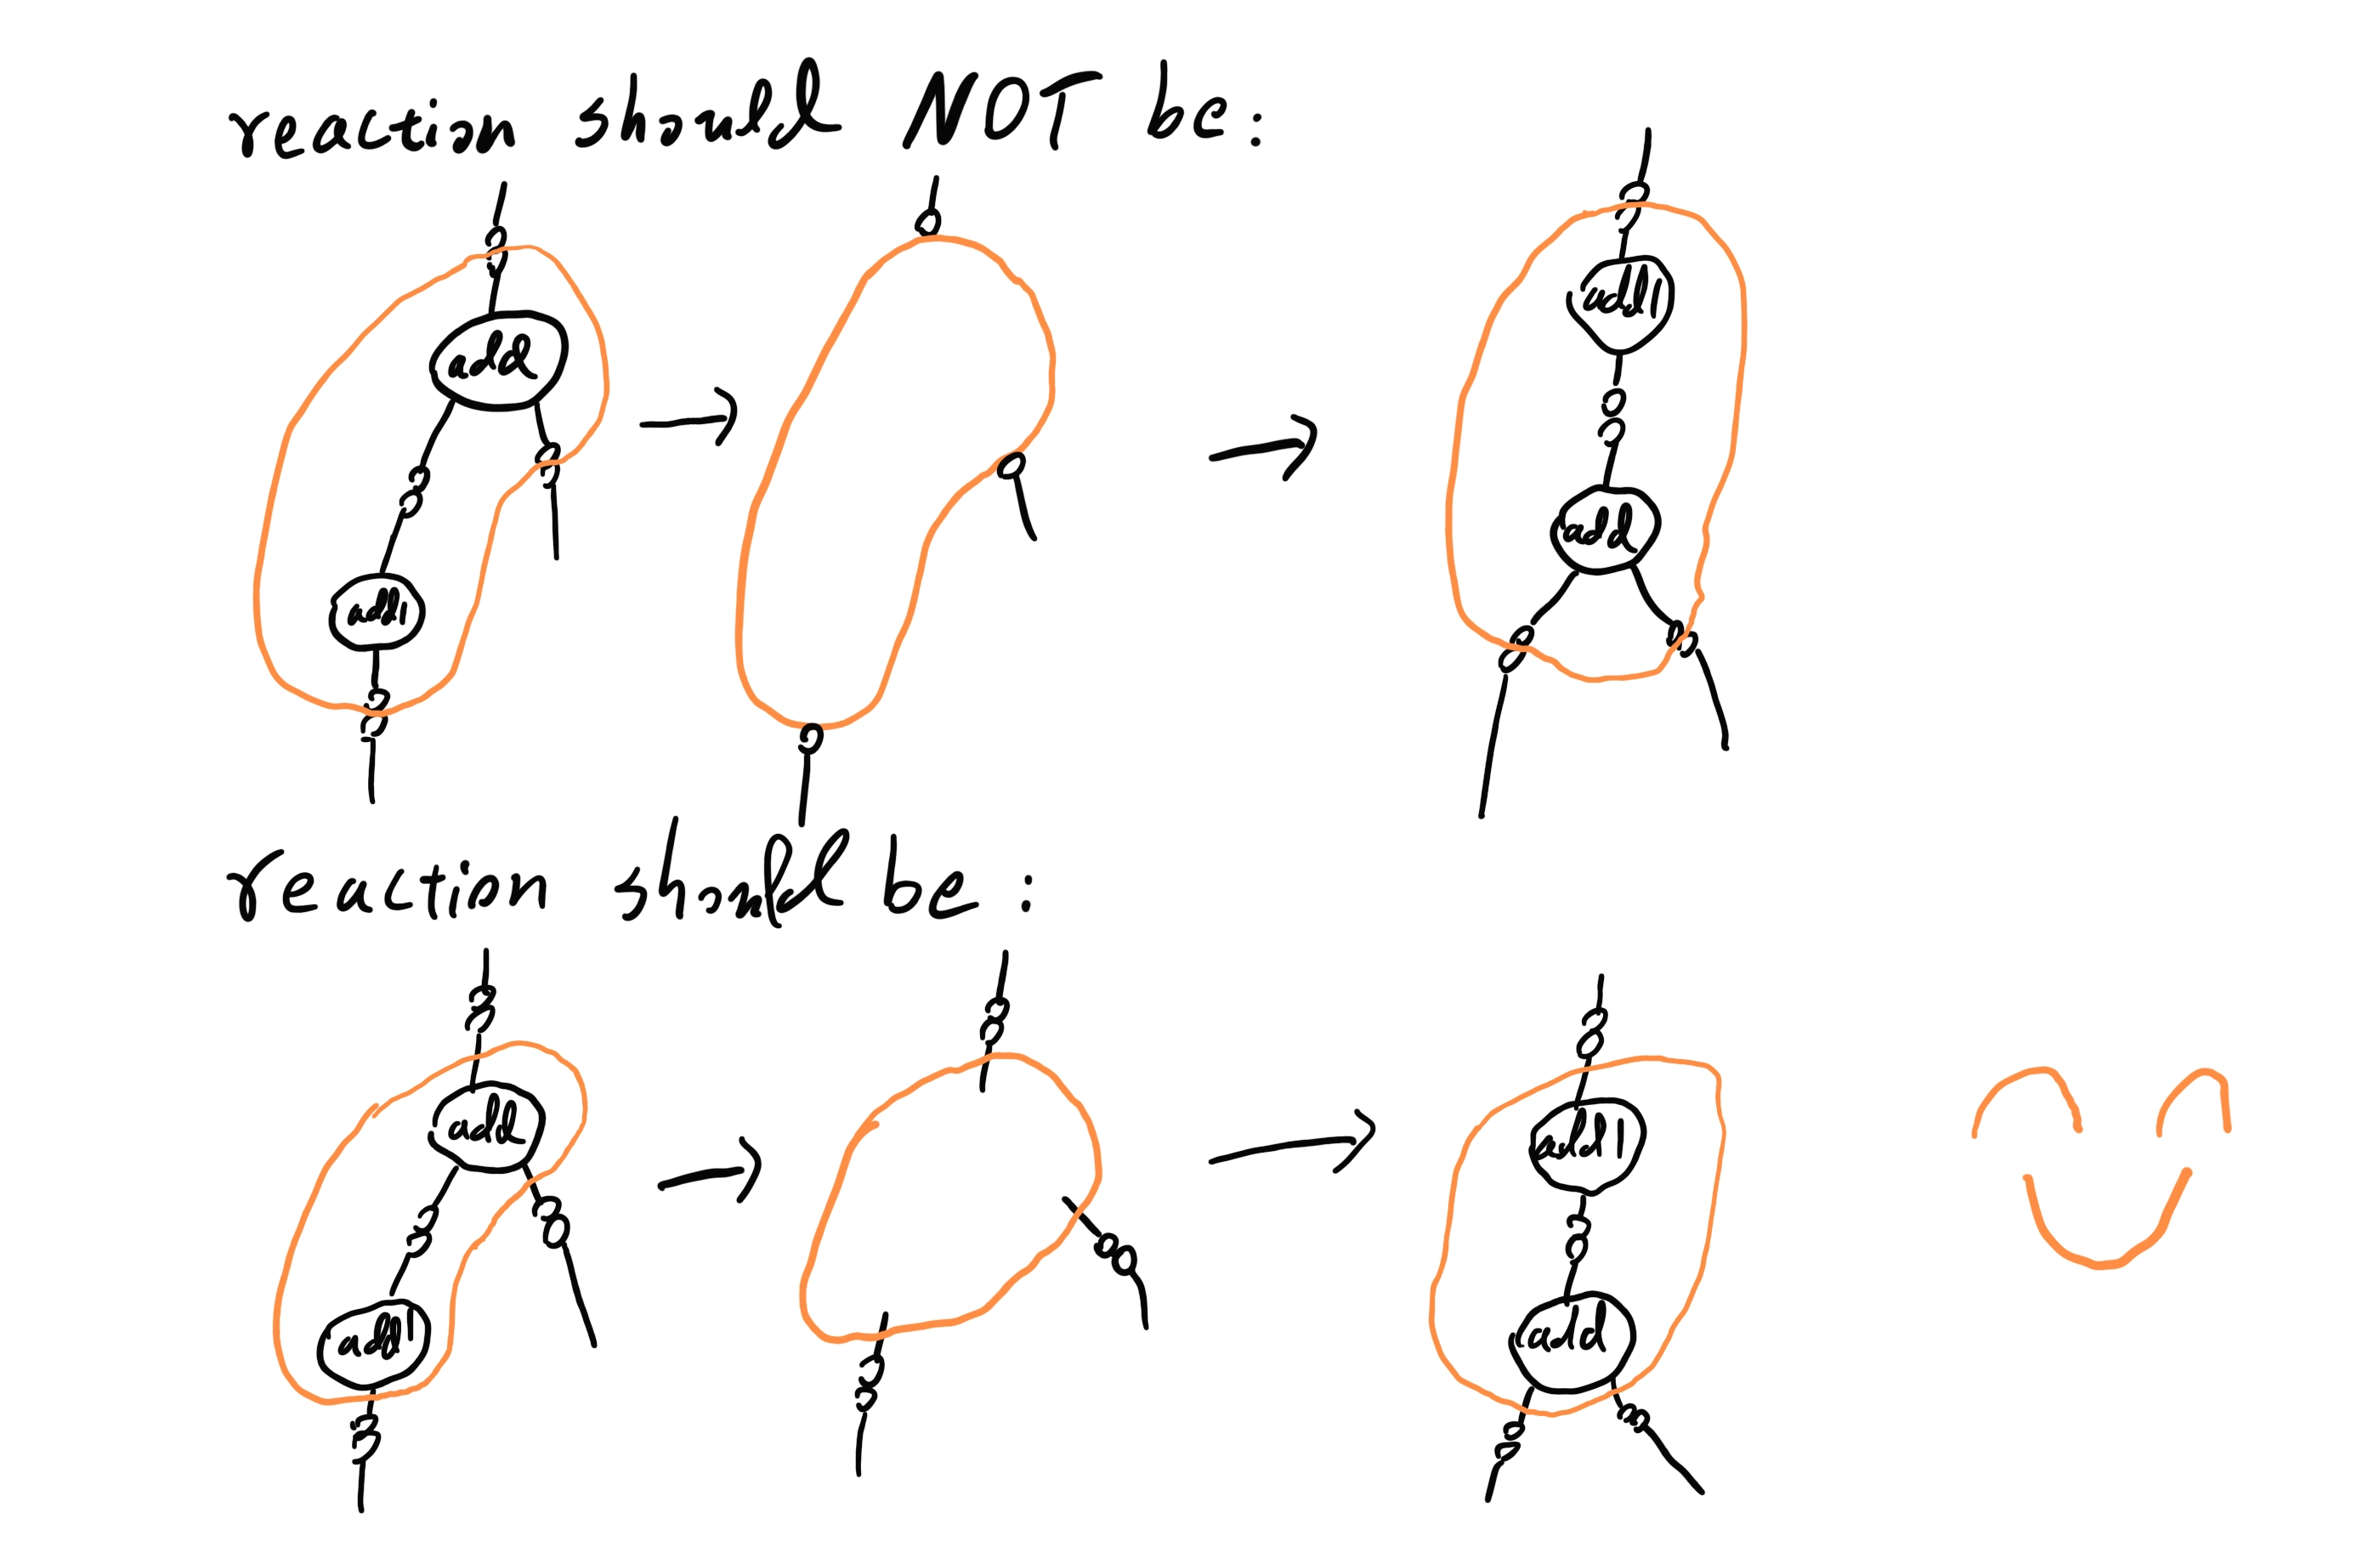 reaction should NOT be:
add
add1
add1
add
reaction should be:
add
add1
add1
add